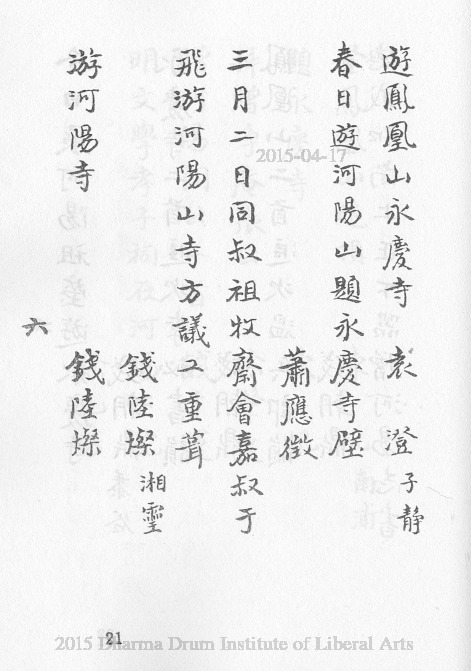 遊鳳凰山永慶寺　袁澄子靜
春日遊河陽山題永慶寺壁
蕭應徵
三月二日同叔祖牧齋會嘉叔于
飛游河陽山寺方議工重葺
錢陸燦湘靈
游河陽寺　錢陸燦
六
21
2015-04-17
2015 Dharma Drum Institute of Liberal Arts